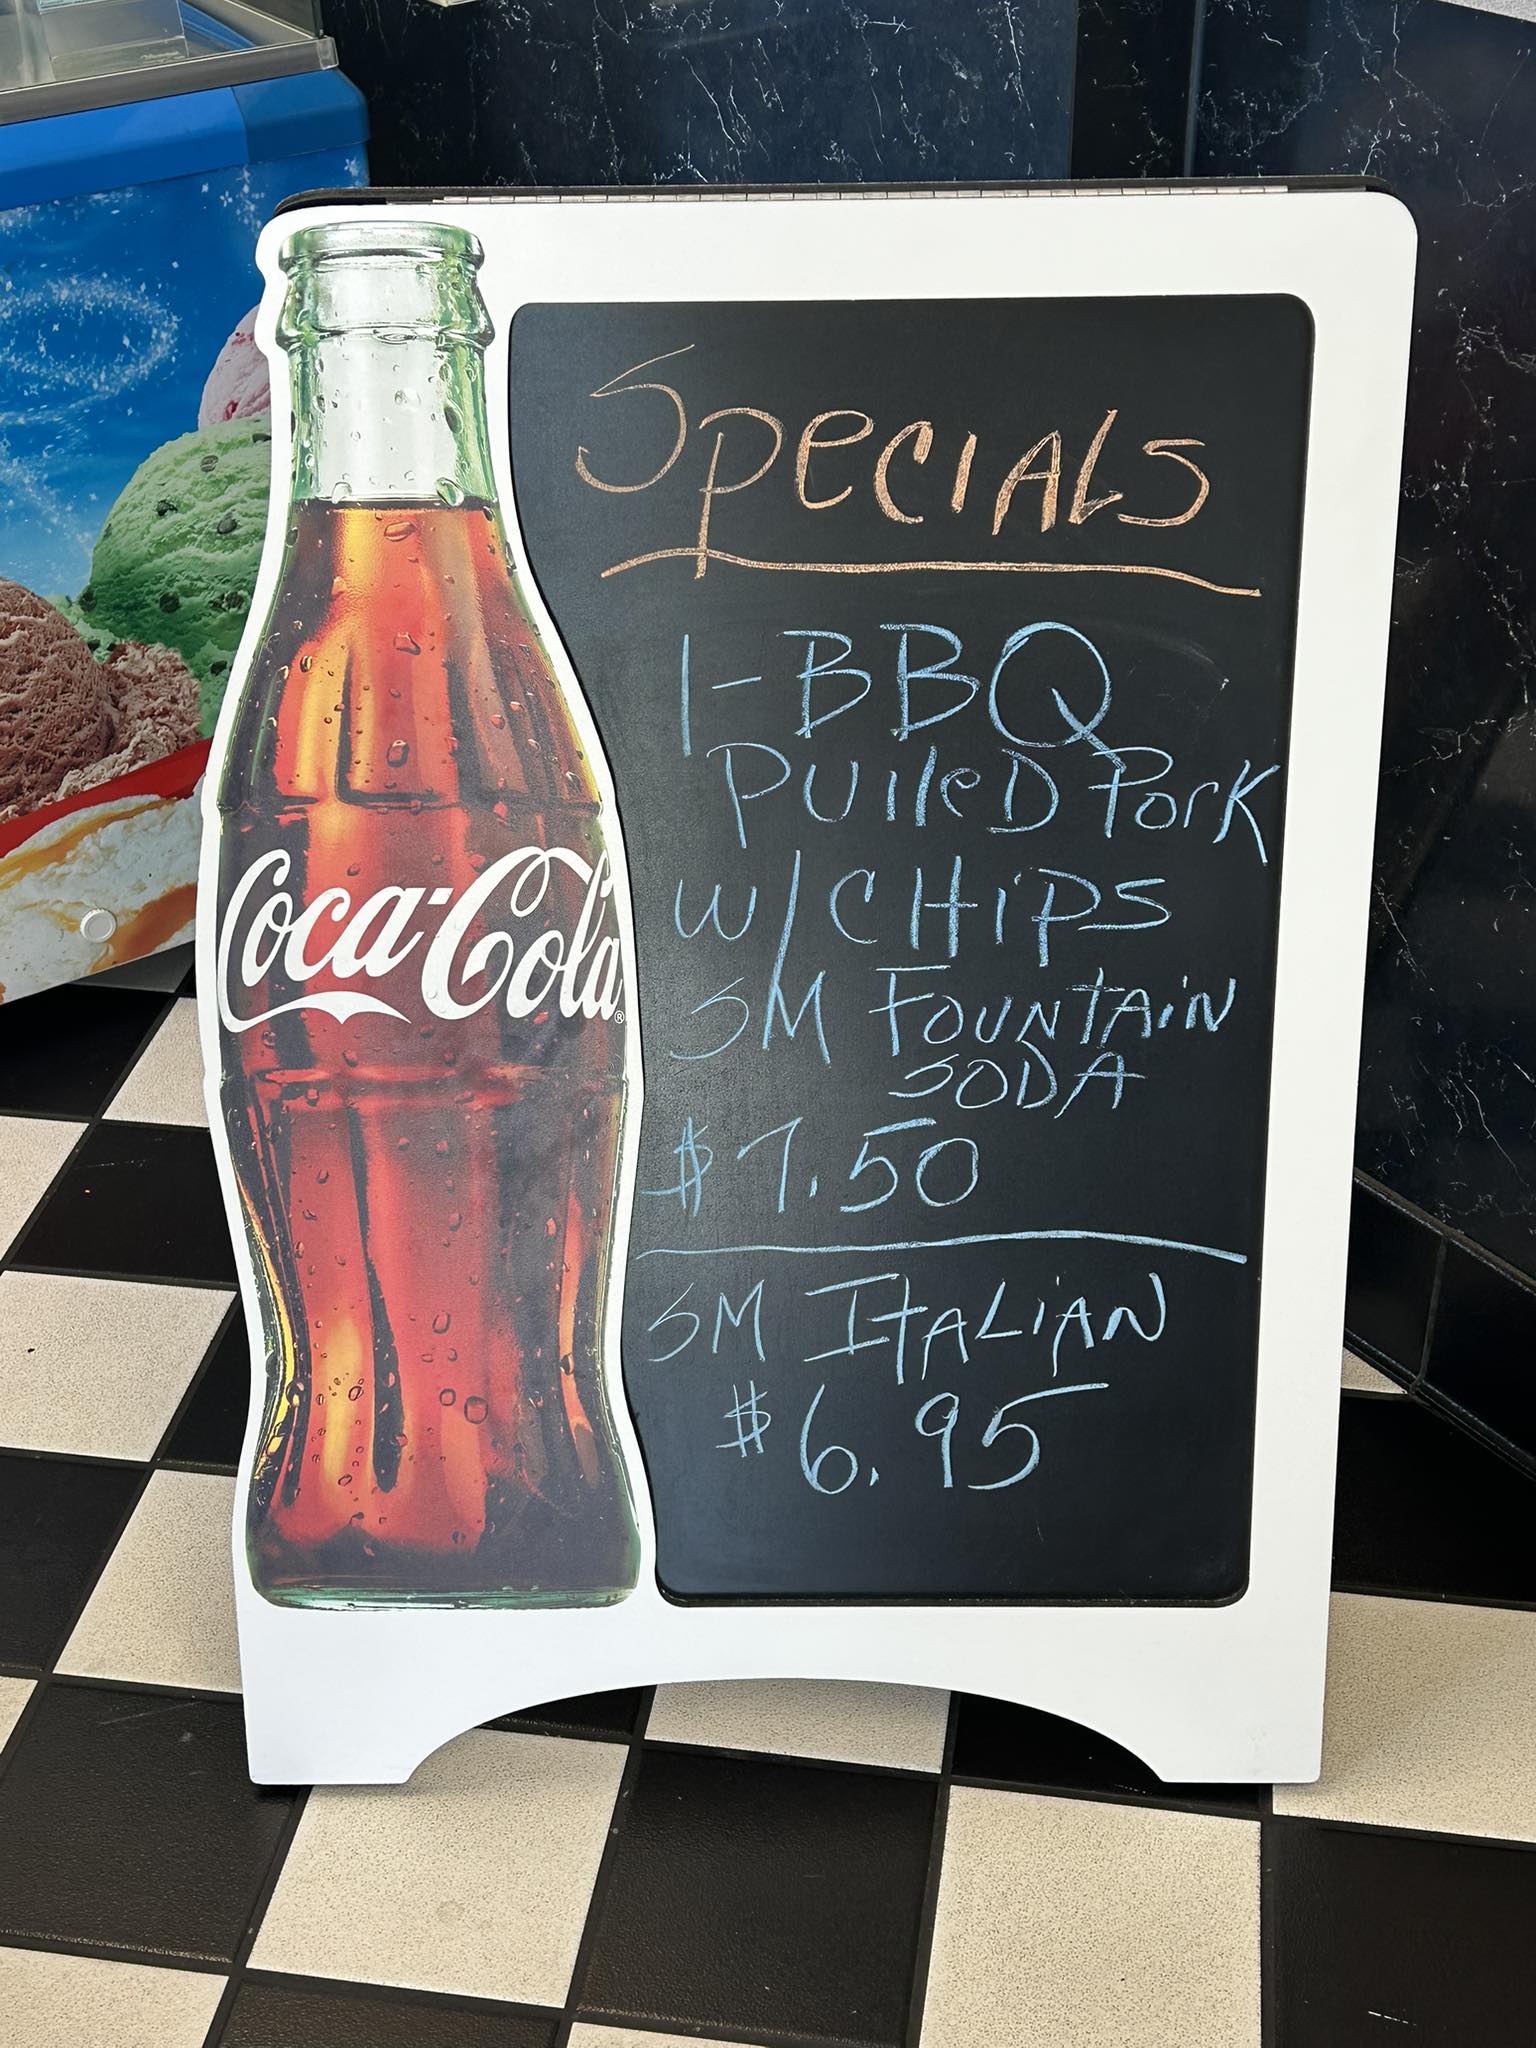 Coca-Cola®
SpeciALS
1-BBQ
PUlleD Pork
W/CHiPS
SM FOUNTAiN
SODA
$7.50
SM ITALiAN
$6.95